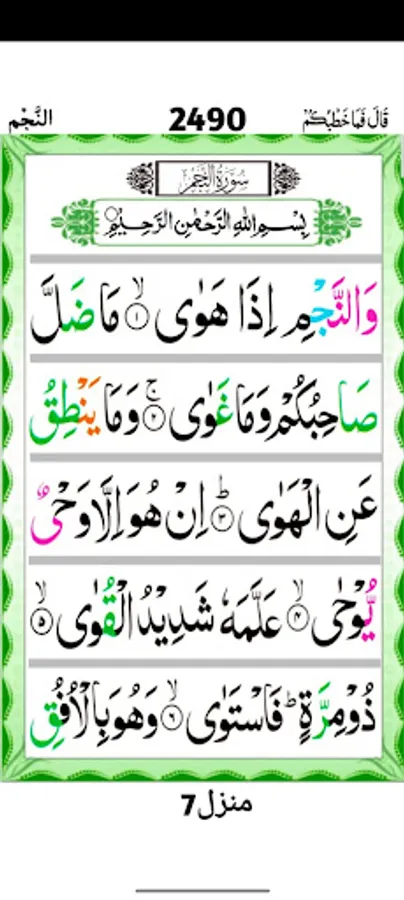 النَّجْم 2490 قَالَ فَمَا خَطْبُكُمْ
سُوْرَةُ النَّجْمِ
بِسْمِ اللهِ الرَّحْمٰنِ الرَّحِيْمِ
وَالنَّجْمِ اِذَا هَوٰى ۙ﴿۱﴾ مَا ضَلَّ
صَاحِبُكُمْ وَمَا غَوٰى ۚ﴿۲﴾ وَمَا يَنْطِقُ
عَنِ الْهَوٰى ؕ﴿۳﴾ اِنْ هُوَ اِلَّا وَحْىٌ
يُّوْحٰى ۙ﴿۴﴾ عَلَّمَهٗ شَدِيْدُ الْقُوٰى ۙ﴿۵﴾
ذُوْ مِرَّةٍ ؕ فَاسْتَوٰى ۙ﴿۶﴾ وَهُوَ بِالْاُفُقِ
منزل7